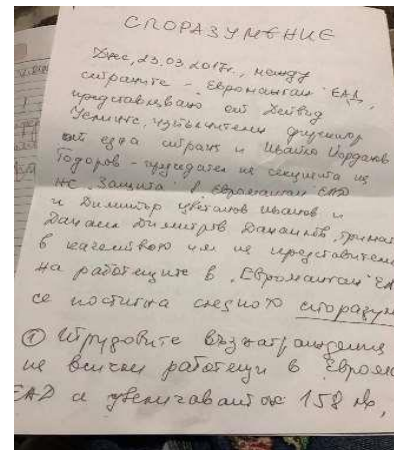 СПОРАЗУМЕНИЕ
Днес, 23.03.2017г., между
страните - "Евроманган" ЕАД,
представлявано от Дейвид
изпълнителен директор
от една страна и Ивайло Йорданов
Тодоров - председател на секцията на
НС "Защита" в Евроманган ЕАД
и Димитър Цветанов Иванов и
Данаил Димитров Данаилов, трима
в качеството им на представители
на работещите в "Евроманган" ЕА
се постигна следното споразум
① Трудовите възнаграждения
на всички работещи в Евром
ЕАД се увеличават със 158 лв,